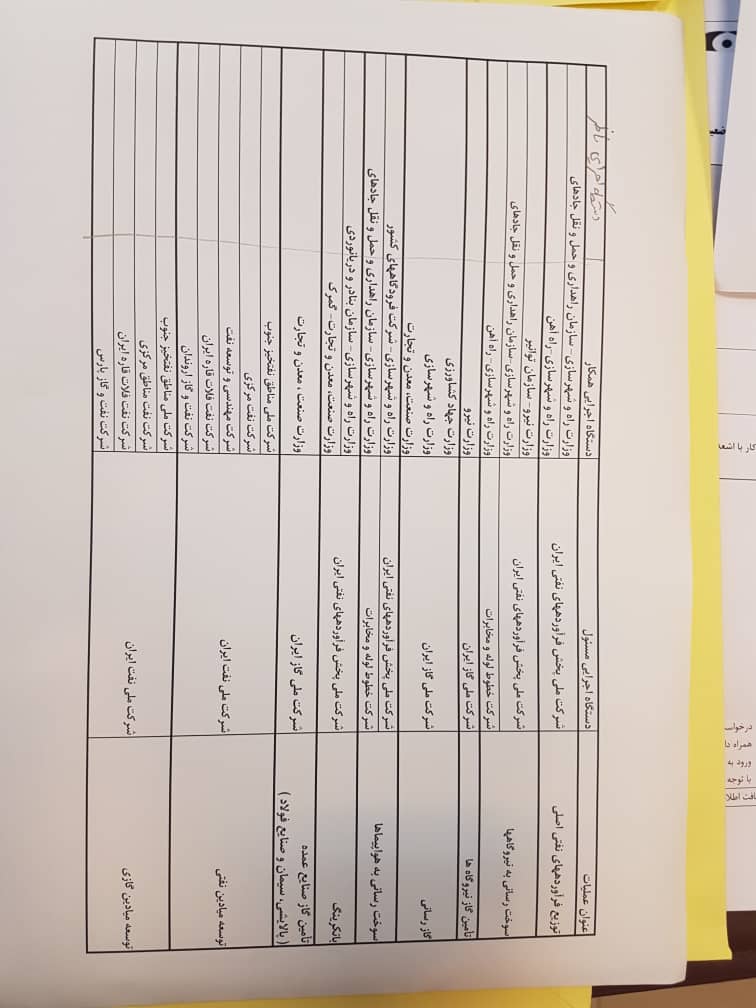 عنوان عملیات
دستگاه اجرایی مسئول
دستگاه اجرایی همکار
دستگاه اجرایی ناظر
توزیع فرآوردههای نفتی اصلی
شرکت ملی پخش فرآوردههای نفتی ایران
وزارت راه و شهرسازی – سازمان راهداری و حمل و نقل جادهای
وزارت راه و شهرسازی-راه آهن
سوخت رسانی به نیروگاهها
شرکت ملی پخش فرآوردههای نفتی ایران
وزارت نیرو- سازمان توانیر
وزارت راه و شهرسازی-سازمان راهداری و حمل و نقل جادهای
شرکت خطوط لوله و مخابرات
وزارت راه و شهرسازی-راه آهن
تأمین گاز نیروگاه ها
شرکت ملی گاز ایران
وزارت نیرو
گاز رسانی
شرکت ملی گاز ایران
وزارت جهاد کشاورزی
وزارت راه و شهرسازی
وزارت صنعت، معدن و تجارت
سوخت رسانی به هواپیماها
شرکت ملی پخش فرآوردههای نفتی ایران
وزارت راه و شهرسازی – شرکت فرودگاههای کشور
شرکت خطوط لوله و مخابرات
وزارت راه و شهرسازی – سازمان راهداری و حمل و نقل جادهای
بانکرینگ
شرکت ملی پخش فرآوردههای نفتی ایران
وزارت راه و شهرسازی – سازمان بنادر و دریانوردی
وزارت صنعت، معدن و تجارت- گمرک
تأمین گاز صنایع عمده
( پالایشی، سیمان و صنایع فولاد )
شرکت ملی گاز ایران
وزارت صنعت ، معدن و تجارت
توسعه میادین نفتی
شرکت ملی نفت ایران
شرکت ملی مناطق نفتخیز جنوب
شرکت نفت مرکزی
شرکت مهندسی و توسعه نفت
شرکت نفت فلات قاره ایران
شرکت نفت و گاز اروندان
توسعه میادین گازی
شرکت ملی نفت ایران
شرکت ملی مناطق نفتخیز جنوب
شرکت نفت مناطق مرکزی
شرکت نفت فلات قاره ایران
شرکت نفت و گاز پارس
کار با اشعه
درخواست
همراه دا
ورود به
با توجه
یافت اطلا